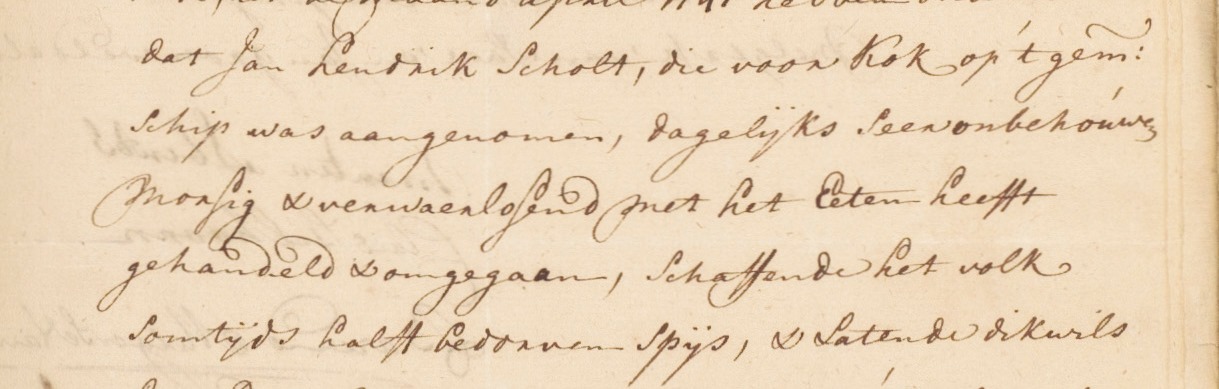 april
dat Jan Hendrik Scholt, die voor Kok op 't gem:
schip was aangenomen, dagelijks Seer onbehouwe,
morsig & verwaerlosend met het Eeten heefft
gehandeld & omgegaan, schaffende het volk
somtijds halff bedorven spijs, & Latende dikwils